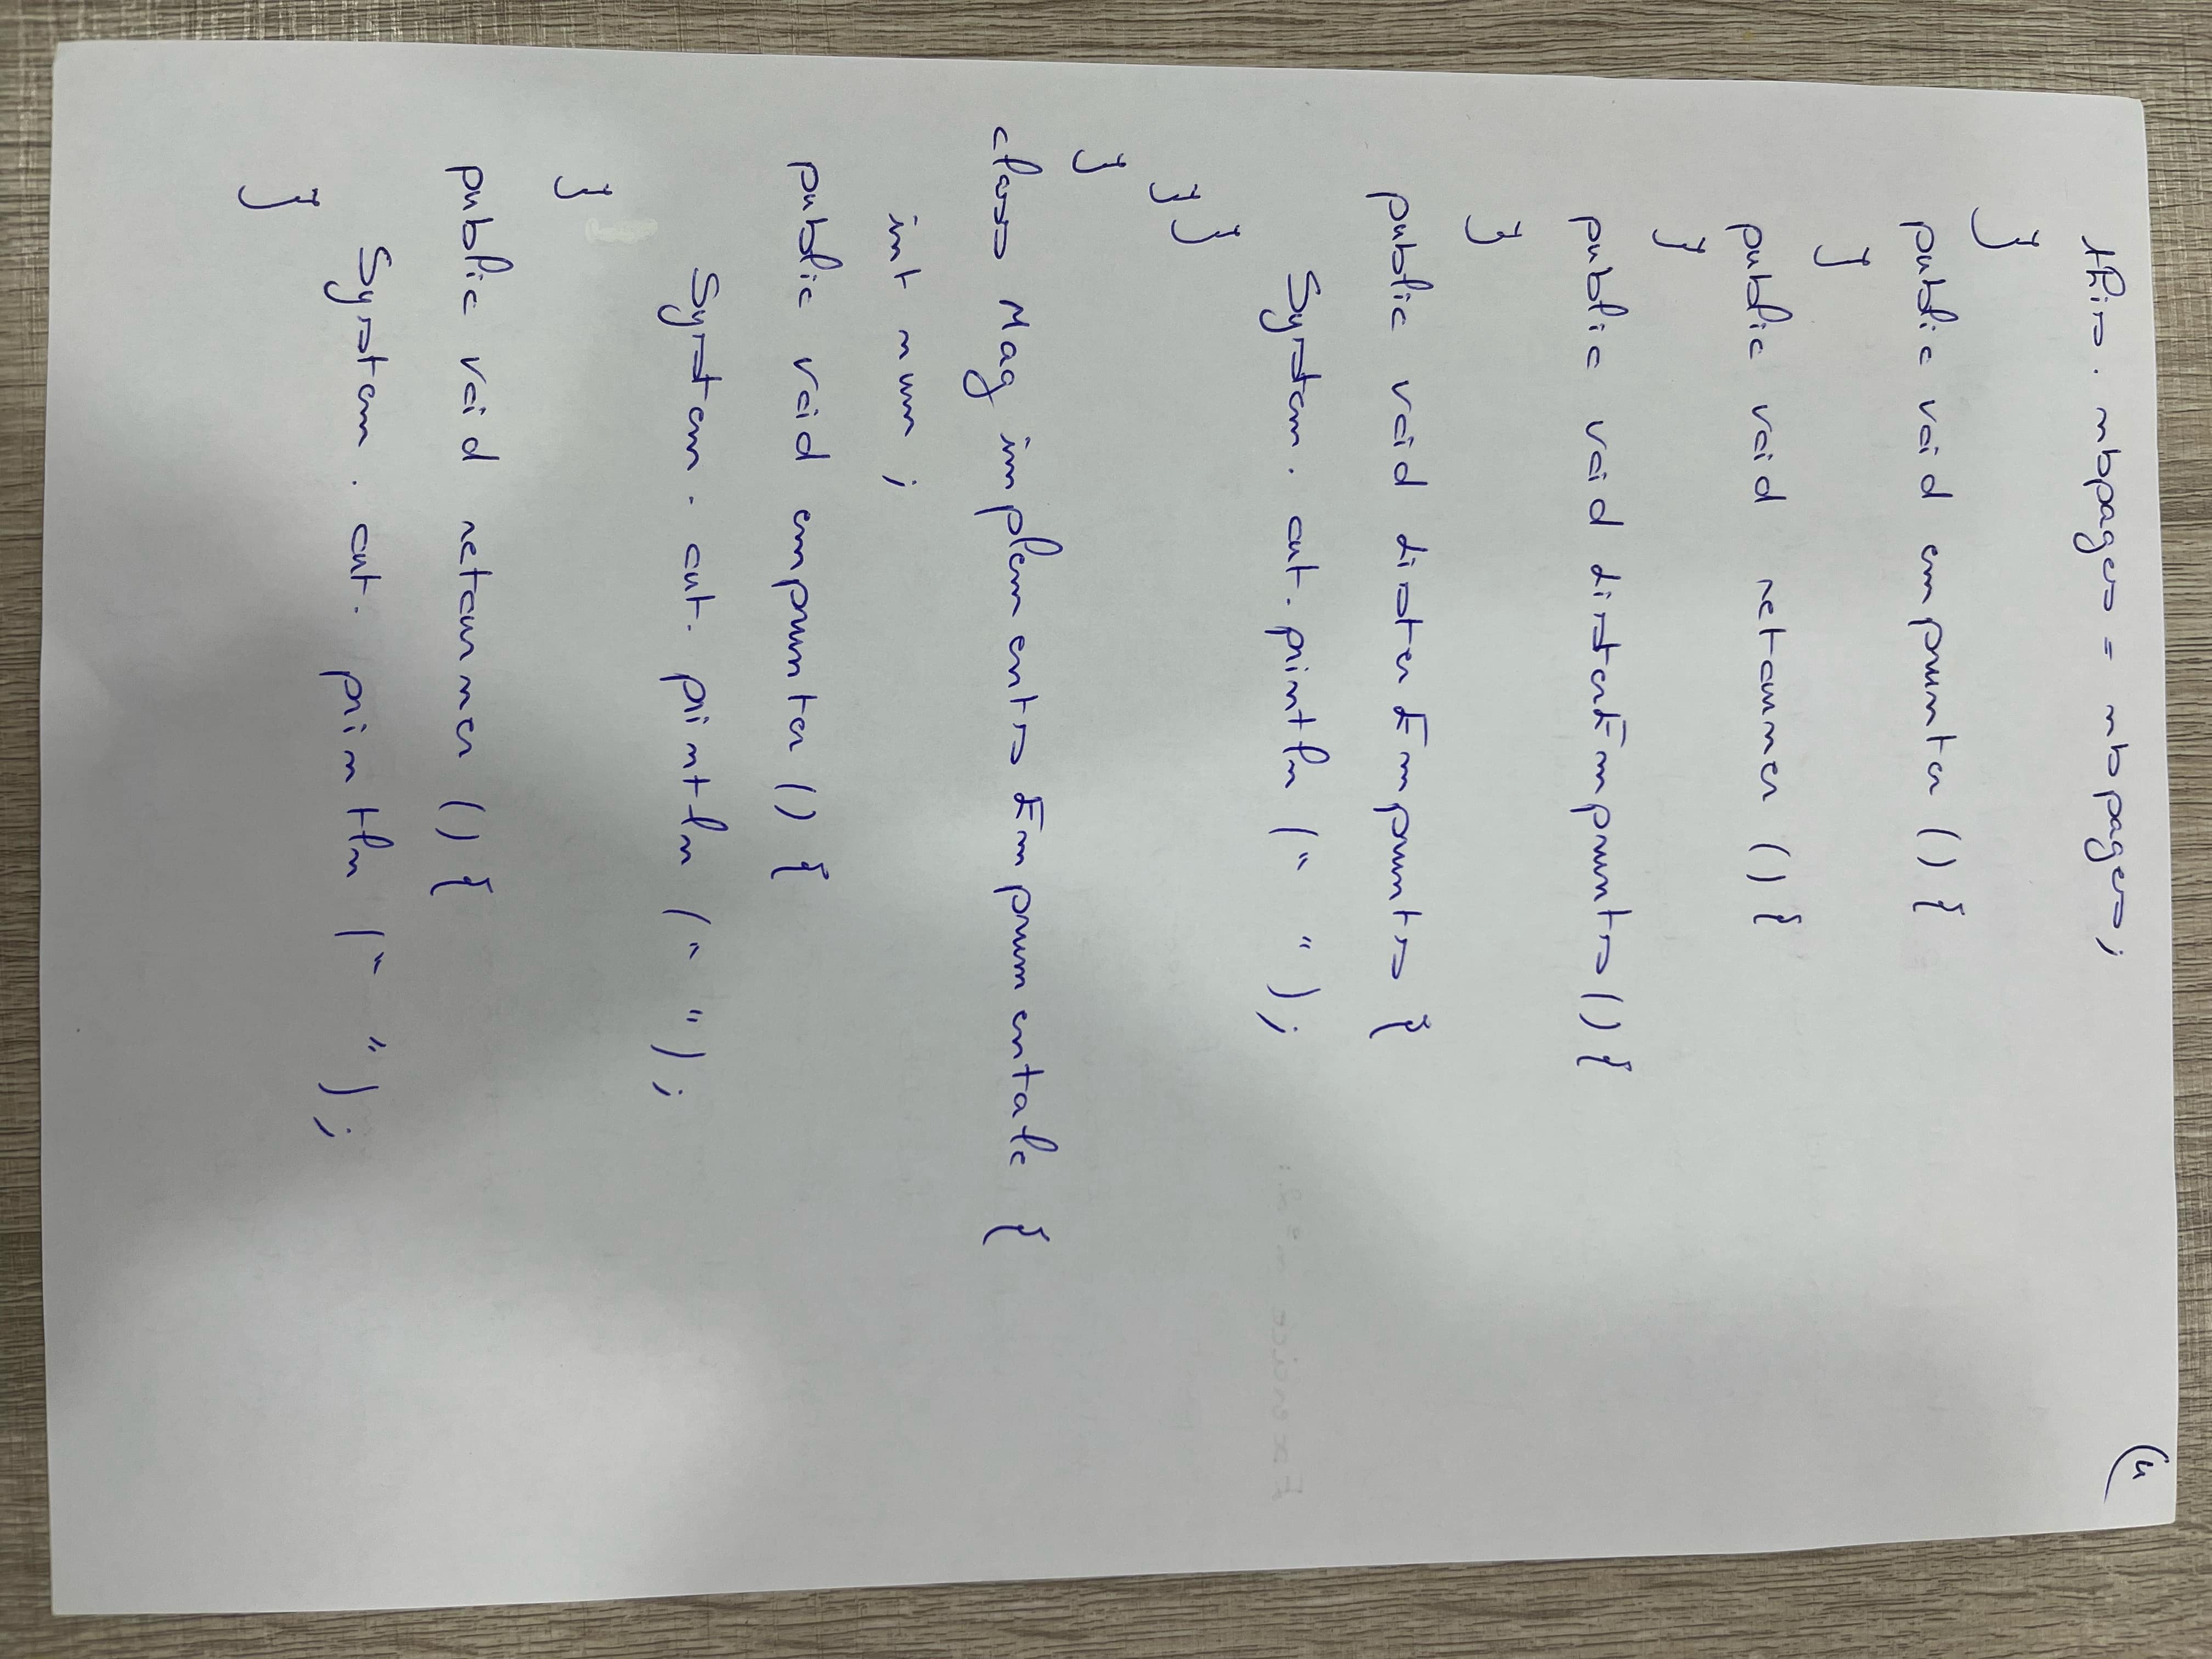 4)
this. nbpages = nbpages;
}
public void emprunter () {
}
public void retourner () {
}
public void listerEmprunts () {
}
public void lister Emprunts {
System. out. println (" ");
}
}
}
class Mag implements Empruntable {
int num ;
public void emprunter () {
System. out. println (" ");
}
public void retourner () {
System. out. println (" ");
}